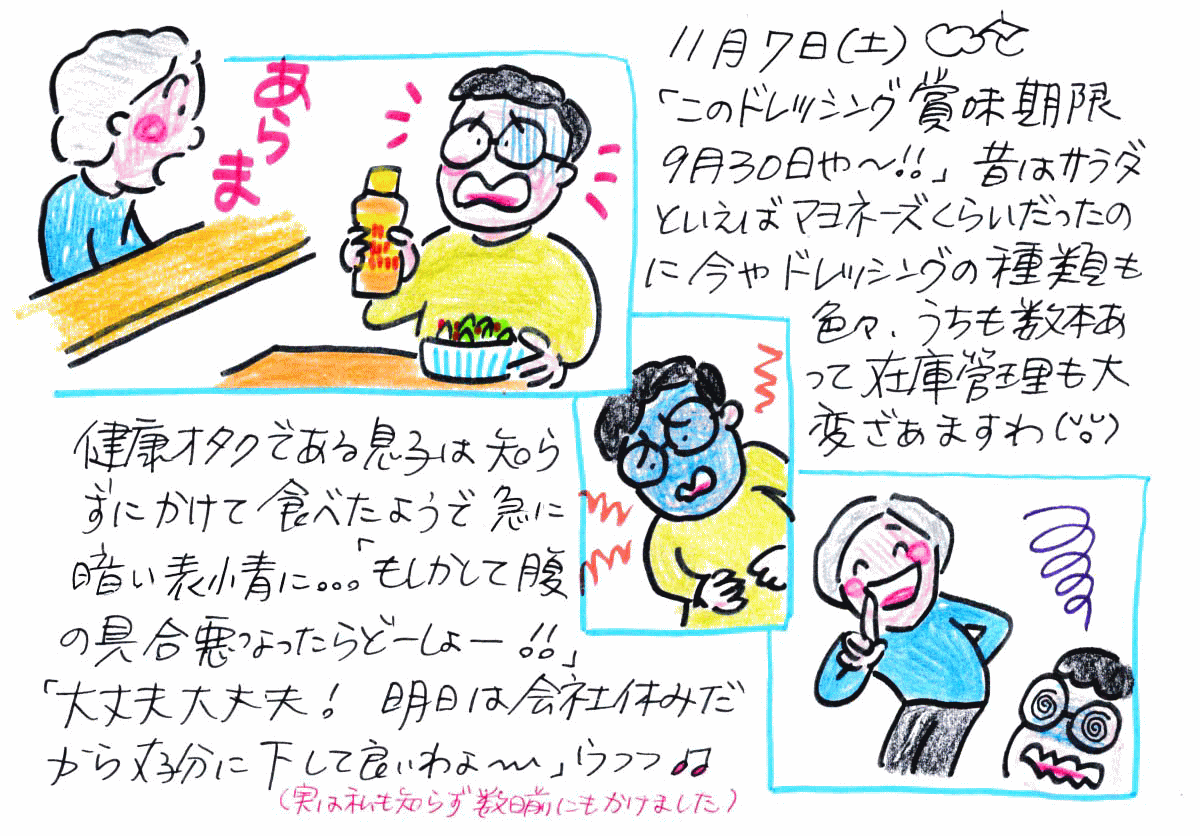 あらま
11月7日(土)
「このドレッシング賞味期限
9月30日や～!!」昔はサラダ
といえばマヨネーズくらいだったの
に今やドレッシングの種類も
色々、うちも数本あ
って在庫管理も大
変ざあますわ
健康オタクである息子は知ら
ずにかけて食べたようで急に
暗い表情に...。「もしかして腹
の具合悪なったらどーしょー!!」
「大丈夫大丈夫! 明日は会社休みだ
から好きな分に下して良いわよ～」うつつ♪♫
(実は私も知らず数日前にもかけました)